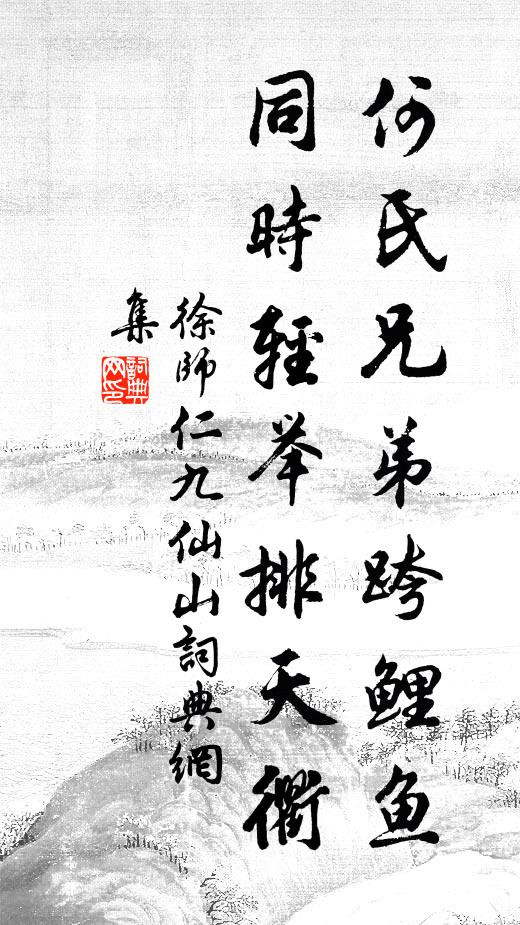 何氏兄弟跨鲤鱼
同時輕举排天衢
徐師仁九仙山詞典網
集
詞典網印